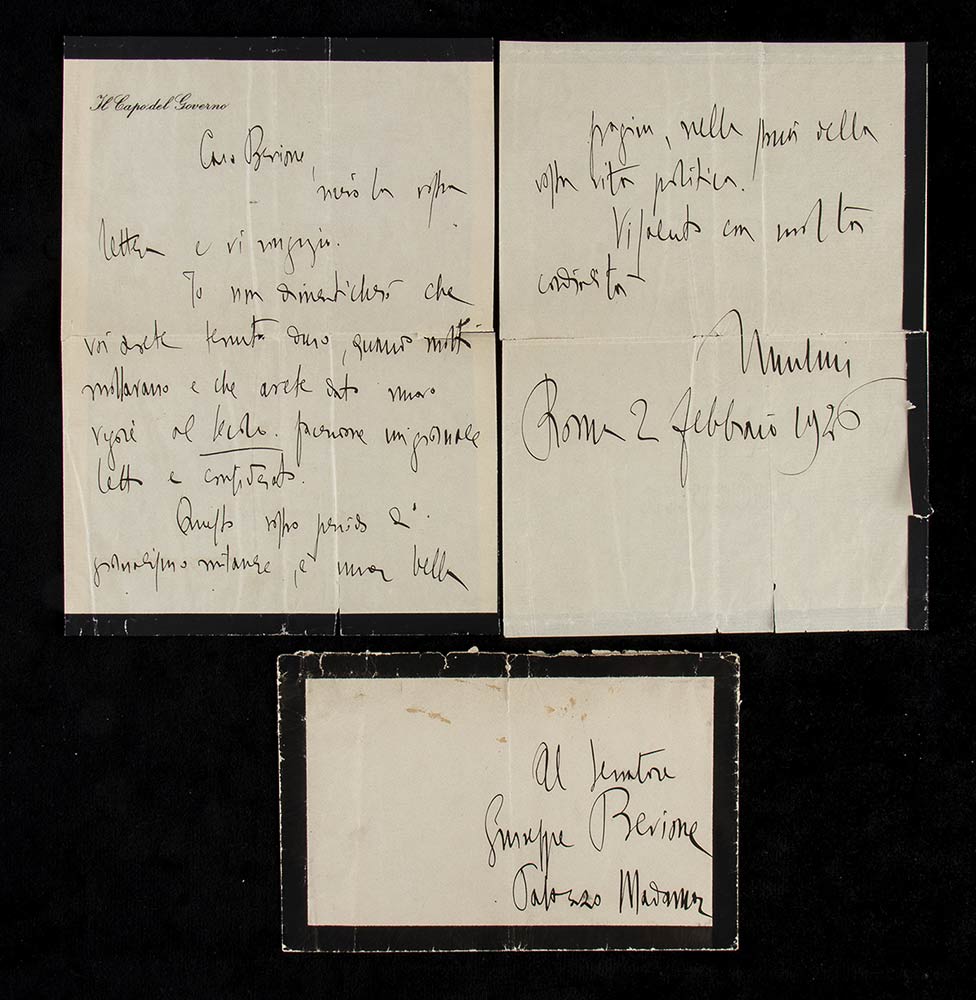 Il Capo del Governo
Caro Bevione,
ricevo la vostra
lettera e vi ringrazio.
Io non dimenticherò che
voi avete tenuto duro, quando molti
mollavano e che avete dato nuovo
vigore al Secolo. facendone un giornale
letto e considerato.
Questo vostro periodo di
giornalismo militante, è una bella
pagina, nella della
vostra vita politica.
Vi saluto con molta
cordialità
Mussolini
Roma 2 febbraio 1926
Al Senatore
Giuseppe Bevione
Palazzo Madama